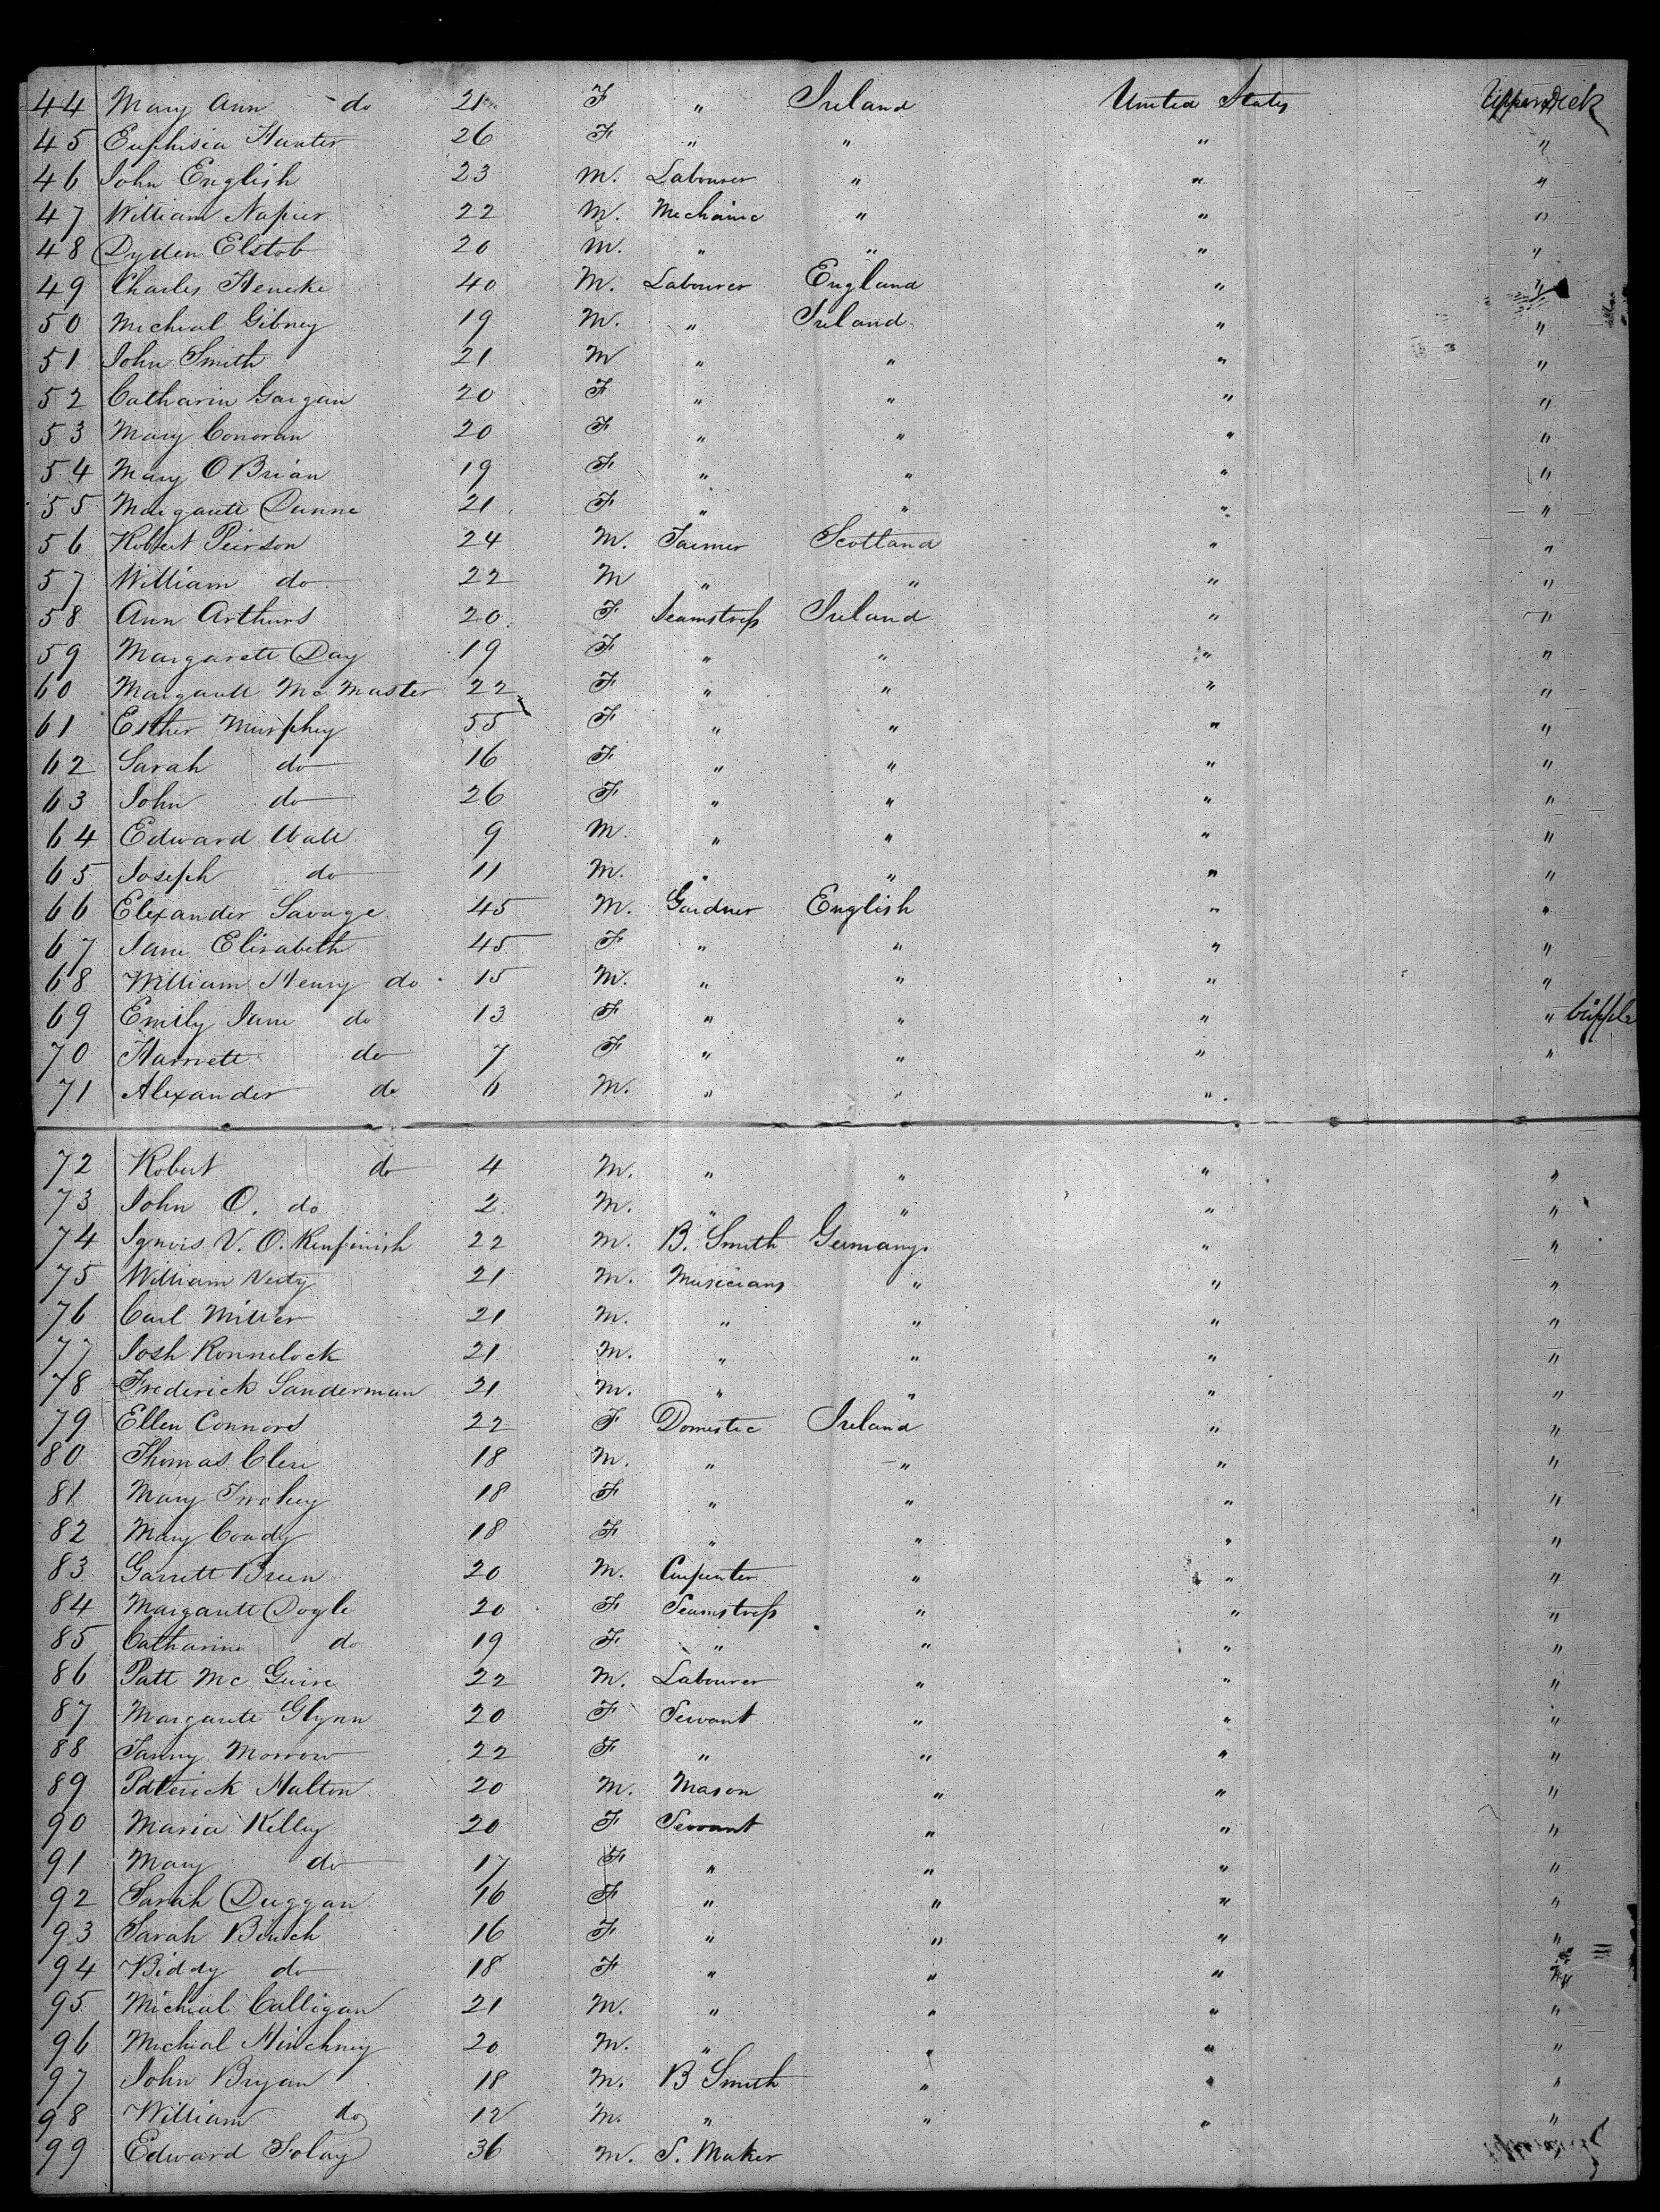 44 Mary Ann do 21 F " Ireland United States Upper Deck
45 Euphisia Hunter 26 F " " " "
46 John English 23 M. Labourer " " "
47 William Napier 22 M. Mechanic " " "
48 Dyden Elstob 20 M. " " " "
49 Charles Heneke 40 M. Labourer England " "
50 Micheal Gibney 19 M. " Ireland " "
51 John Smith 21 M " " " "
52 Catharin Gargan 20 F " " " "
53 Mary Conoran 20 F " " " "
54 Mary O Brian 19 F " " " "
55 Margarett Dunne 21 F " " " "
56 Robert Peirson 24 M. Farmer Scotland " "
57 William do 22 M " " " "
58 Ann Arthurs 20 F Seamstress Ireland " "
59 Margarett Day 19 F " " " "
60 Margarett Mc Master 22 F " " " "
61 Esther Murphey 55 F " " " "
62 Sarah do 16 F " " " "
63 John do 26 F " " " "
64 Edward Wall 9 M " " " "
65 Joseph do 11 M. " " " "
66 Elexander Savage 45 M. Gardner English " "
67 Jane Elisabeth 45 F " " " "
68 William Henry do 15 M. " " " "
69 Emily Jane do 13 F " " " "
70 Harriett do 7 F " " " "
71 Alexander do 6 M. " " "
72 Robert do 4 M. " " " "
73 John O. do 2 M. " " " "
74 V. O. 22 M. B. Smith Germany " "
75 William 21 M. Musicians " " "
76 Carl Miller 21 M. " " " "
77 Josh Ronnelock 21 M. " " " "
78 Frederick Sanderman 21 M. " " " "
79 Ellen Connors 22 F Domestic Ireland " "
80 Thomas Clere 18 M. " " " "
81 Mary 18 F " " " "
82 Mary Coady 18 F " " " "
83 Garrett Breen 20 M. Carpenter " " "
84 Margarett Dogle 20 F Seamstress " " "
85 Catharine do 19 F " " " "
86 Patt Mc Guire 22 M. Labourer " " "
87 Margarette Glynn 20 F Servant " " "
88 Fanny Morrow 22 F " " " "
89 Patterick Halton 20 M. Mason " " "
90 Maria Kelley 20 F Servant " " "
91 Mary do 17 F " " " "
92 Sarah Duggan 16 F " " " "
93 Sarah 16 F " " " "
94 Biddy do 18 F " " " "
95 Micheal Calligan 21 M. " " " "
96 Micheal Hinchney 20 M. " " " "
97 John Bryan 18 M. B Smith " " "
98 William do 12 M. " " " "
99 Edward Folay 36 M. S. Maker